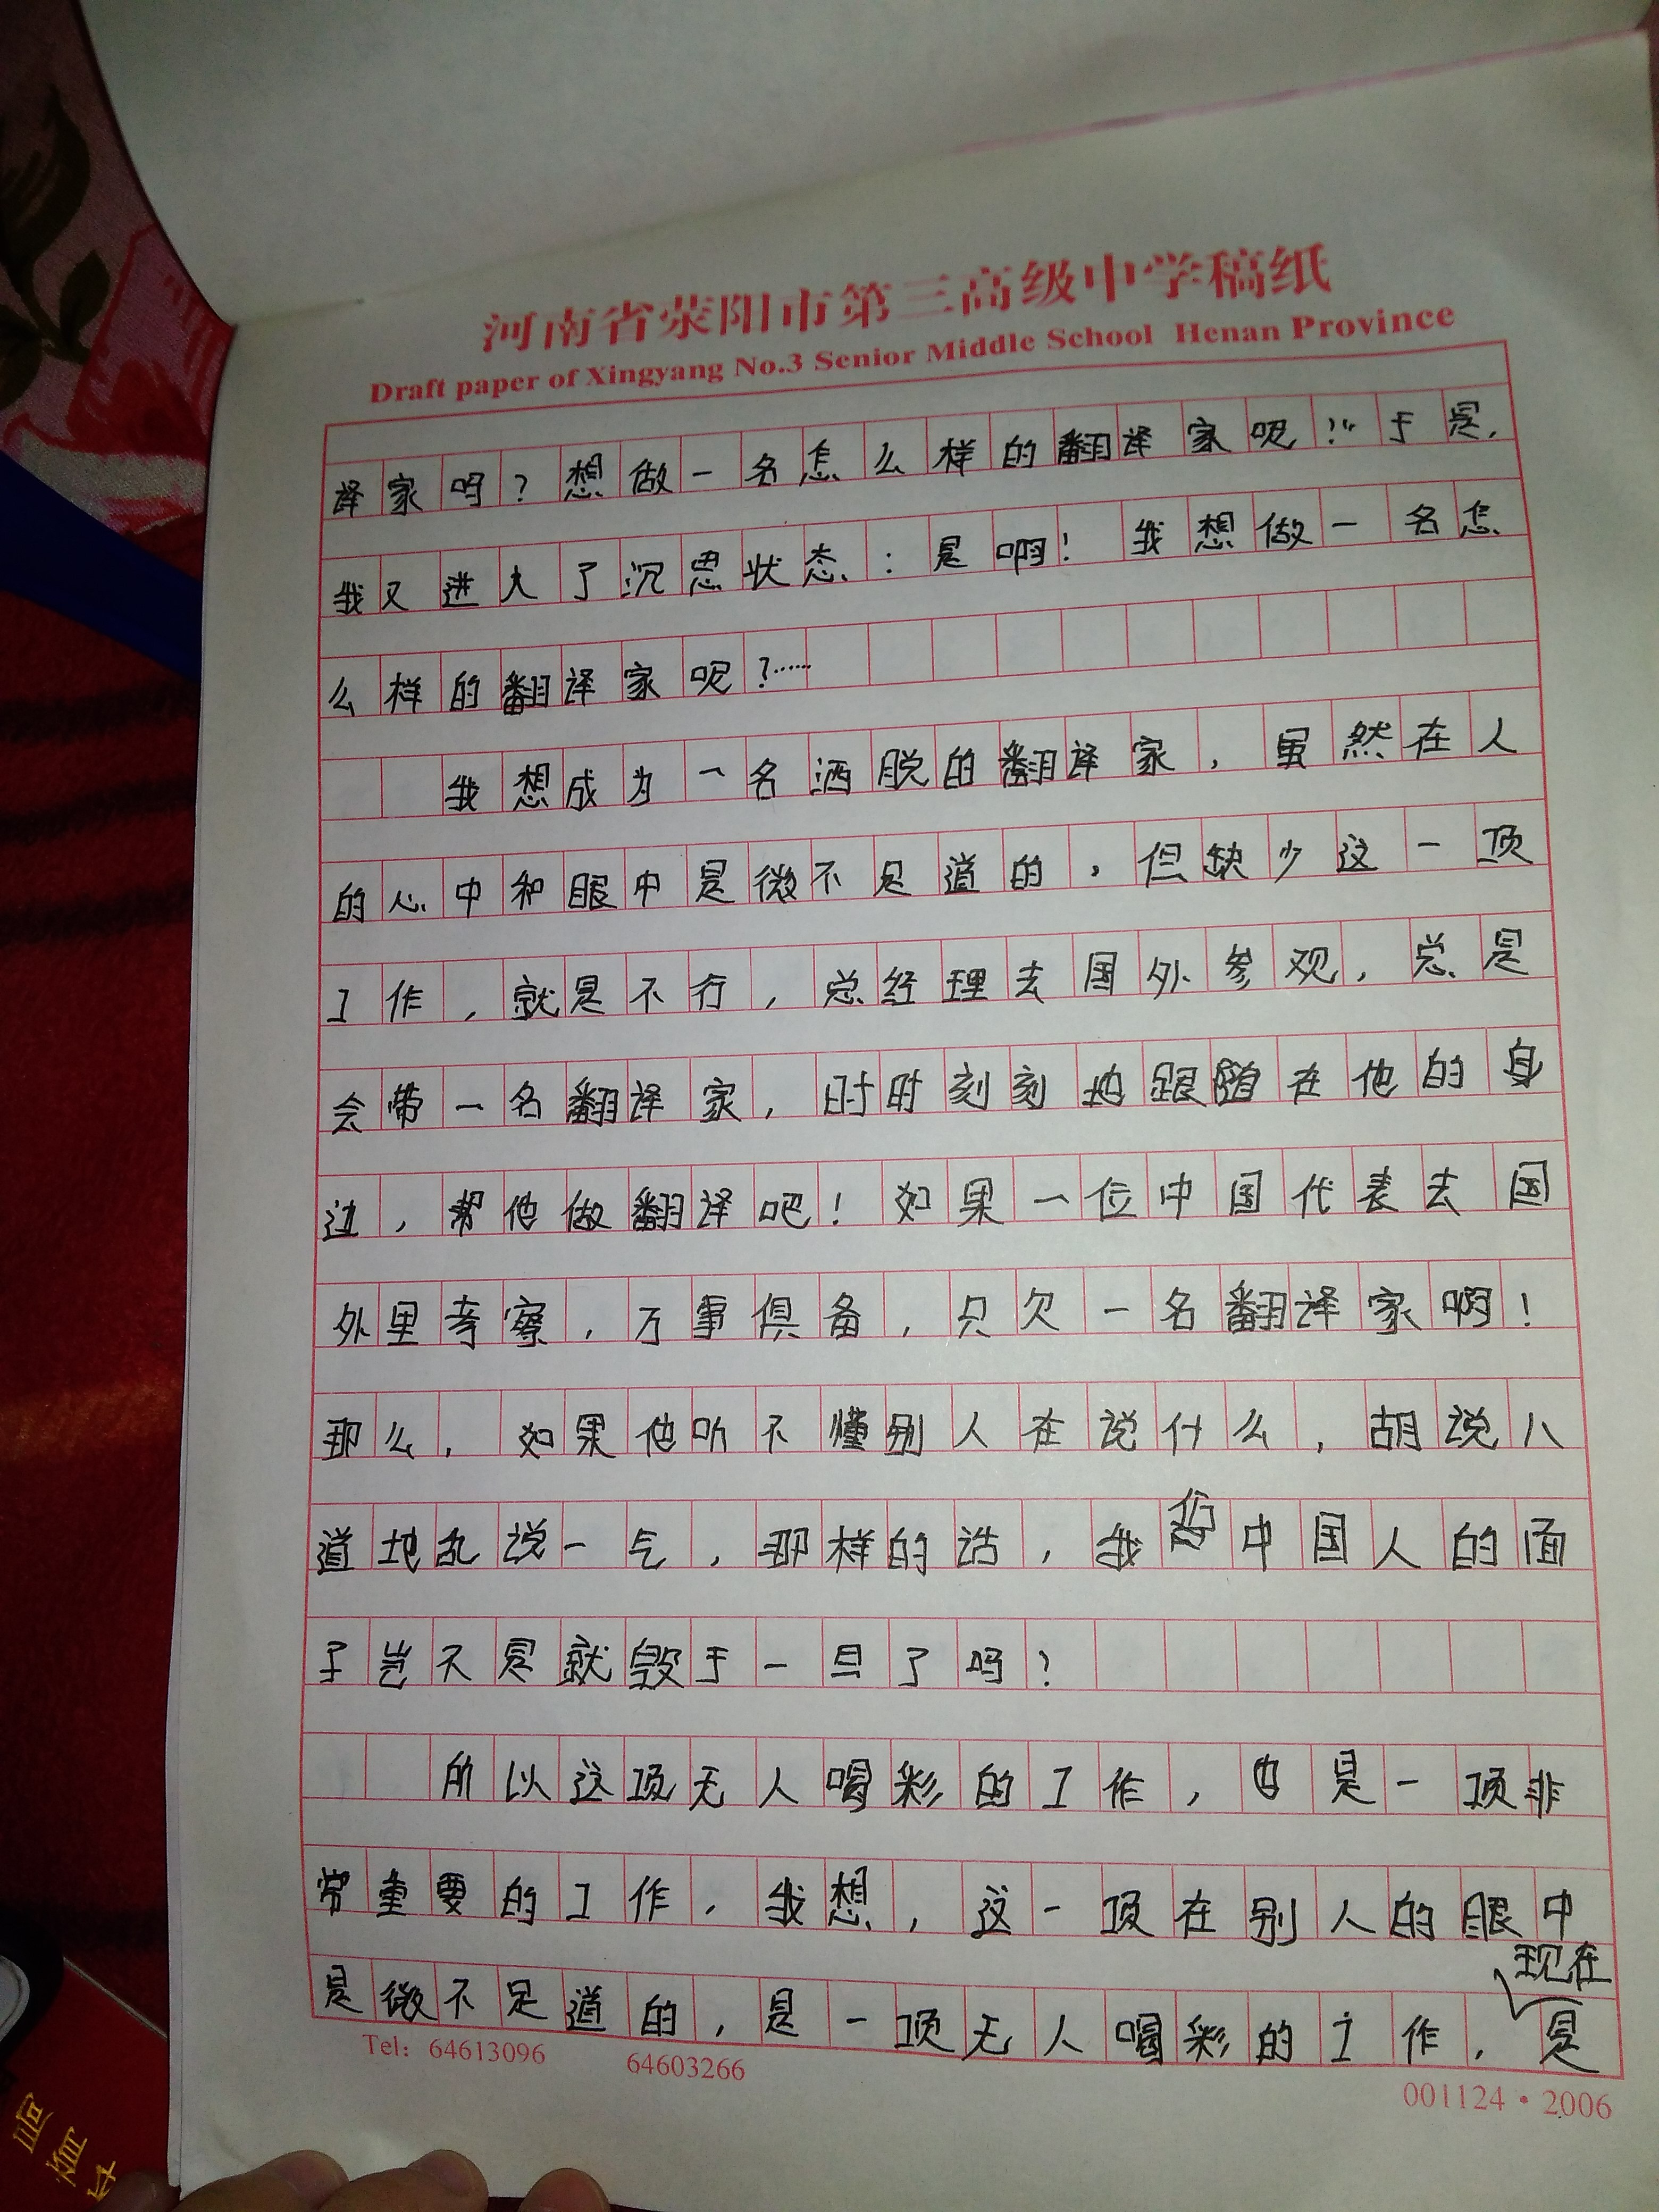 河南省荥阳市第三高级中学稿纸
Draft paper of Xingyang No.3 Senior Middle School Henan Province
译家吗?想做一名怎么样的翻译家呢?"于是,
我又进大了沉思状态:是啊!我想做一名怎
么样的翻译家呢?……
我想成为一名洒脱的翻译家,虽然在人
的心中和眼中是微不足道的,但缺少这一项
工作,就是不行,总经理去国外参观,总是
会带一名翻译家,时时刻刻地跟随在他的身
边,帮他做翻译吧!如果一位中国代表去国
外里考察,万事俱备,只欠一名翻译家啊!
那么,如果他听不懂别人在说什么,胡说八
道地乱说一气,那样的话,我们中国人的面
子岂不是就毁于一旦了吗?
所以这项无人喝彩的工作,也是一项非
常重要的工作,我想,这一项在别人的眼中
是微不足道的,是一项无人喝彩的工作,现在是
Tel: 64613096 64603266
001124·2006